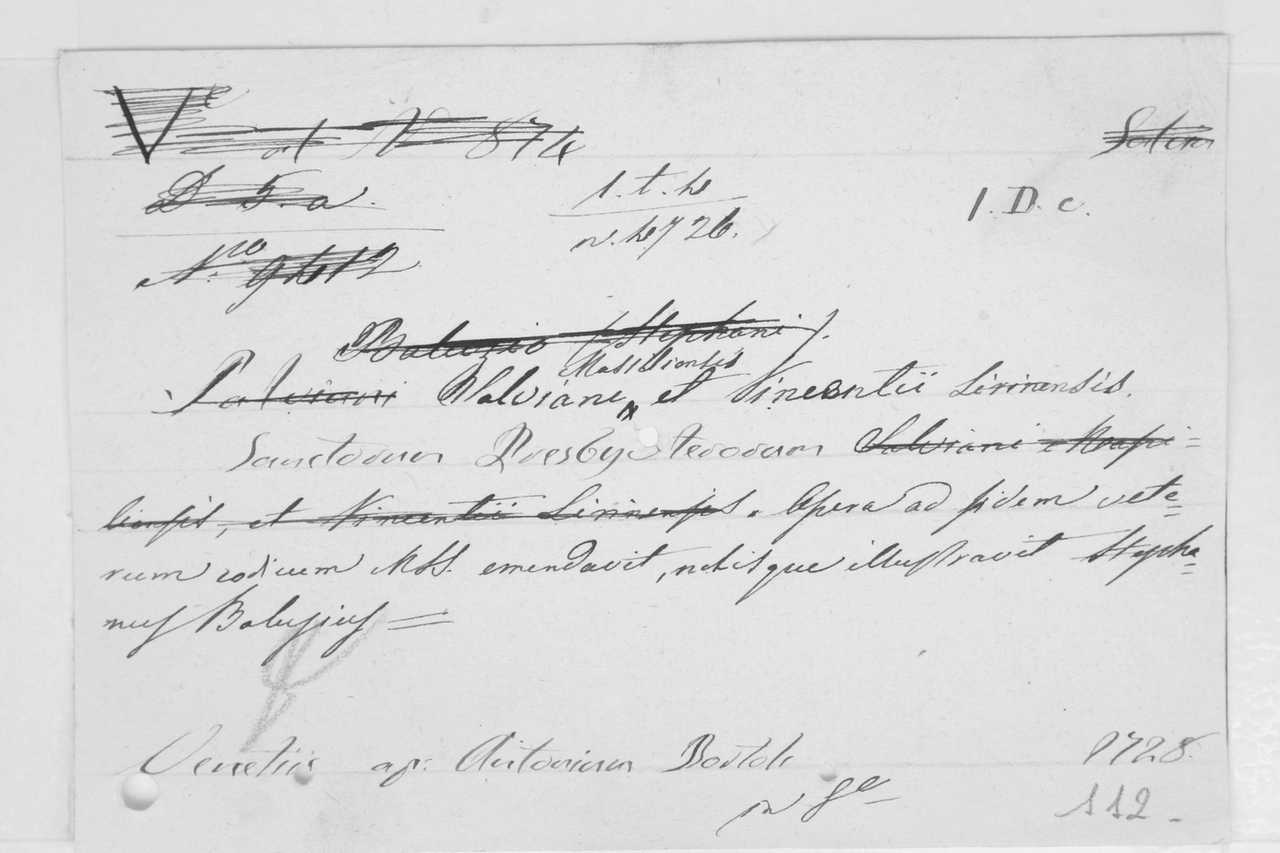 V e
art N 874 Sater
D 5. a. 1. t. h 1. D. c.
N.ro 9412 n. h726.
Baluzio (Stephani).
Massiliensis
Salviani et Vincentii Lirinensis.
Sanctorum Presbyterorum Salviani Massi=
liensis, et Vincentii Lirinensis. Opera ad fidem vete=
rum codicum MSS. emendavit, notisque illustravit Stepha=
nus Baluzius =
Venetiis ap: Antonium Bortoli 1728.
in 8º 112.